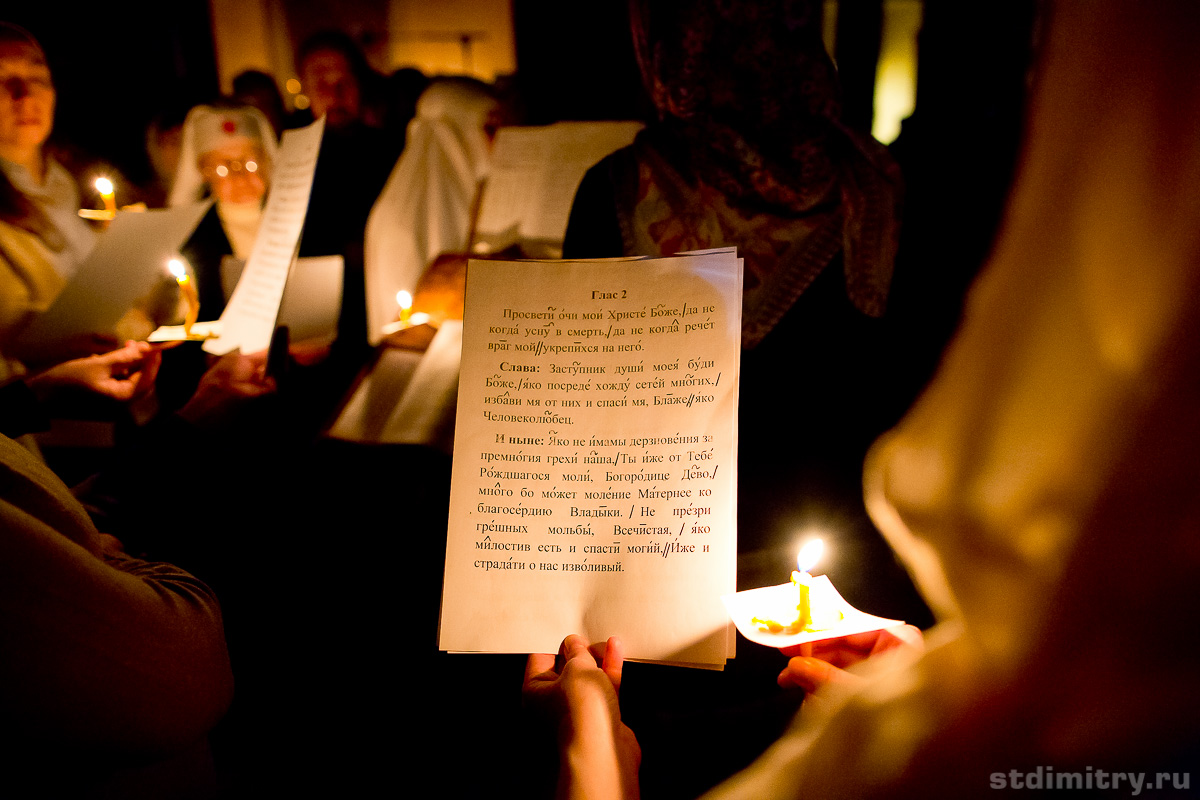 Глас 2
Просвети́ о́чи мои́ Христе́ Бо́же,/да не
когда́ усну́ в смерть,/да не когда́ рече́т
враг мой//укрепи́хся на него́.
Слава: Засту́пник души́ моея́ бу́ди
Бо́же,/я́ко посреде́ хожду́ сете́й мно́гих,/
изба́ви мя от них и спаси́ мя, Бла́же//я́ко
Человеколю́бец.
И ныне: Я́ко не и́мамы дерзнове́ния за
премно́гия грехи́ на́ша,/Ты и́же от Тебе́
Ро́ждшагося моли́, Богоро́дице Де́во,/
мно́го бо мо́жет моле́ние Ма́тернее ко
благосе́рдию Влады́ки. / Не пре́зри
гре́шных мольбы́, Всечи́стая, / я́ко
ми́лостив есть и спасти́ моги́й,//И́же и
страда́ти о нас изво́ливый.
stdimitry.ru